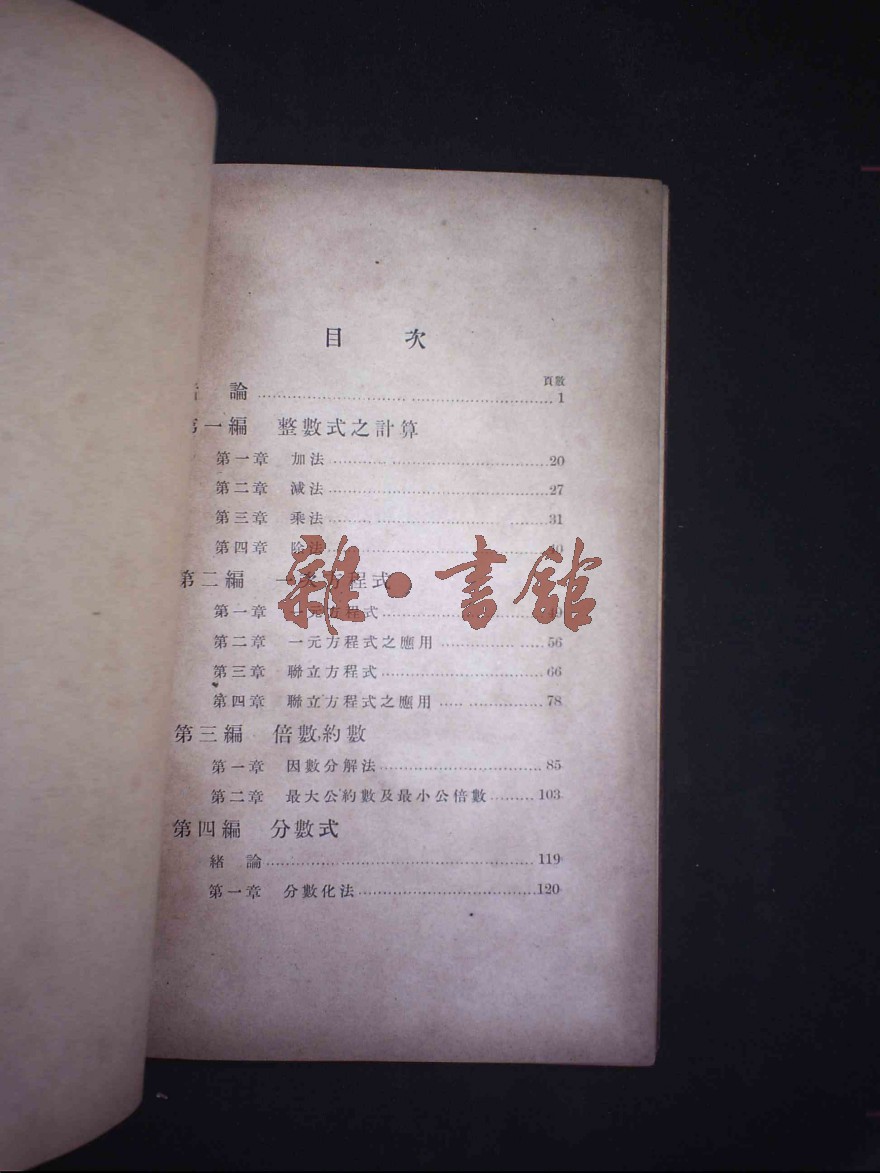 目 次
頁數
緒 論 1
第一編 整數式之計算
第一章 加法 20
第二章 減法 27
第三章 乘法 31
第四章 除法 40
第二編 一次方程式
第一章 一元方程式
第二章 一元方程式之應用 56
第三章 聯立方程式 66
第四章 聯立方程式之應用 78
第三編 倍數,約數
第一章 因數分解法 85
第二章 最大公約數及最小公倍數 103
第四編 分數式
緒 論 119
第一章 分數化法 120
雜·書館